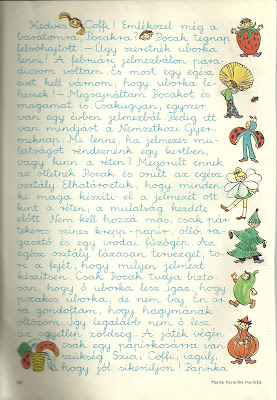 Kedves Coffi! Emlékszel még a
barátomra, Pocakra? Pocak tegnap
felsóhajtott: – Úgy szeretnék uborka
lenni! A februári jelmezbálon para-
dicsom voltam. És most egy egész
évet kell várnom, hogy uborka le-
hessek! – Megsajnáltam Pocakot és
magamat is. Csakugyan, egyszer
van egy évben jelmezbál. Pedig itt
van mindjárt a Nemzetközi Gyer-
meknap. Mi lenne, ha jelmezes mu-
latságot rendeznénk egy kertben,
vagy kinn a réten? Megörült ennek
az ötletnek Pocak és örült az egész
osztály. Elhatároztuk, hogy minden-
ki maga készíti el a jelmezét ott
kint a réten, a mulatság kezdete
előtt. Nem kell hozzá más, csak pár
tekercs színes krepp-papír, olló, ra-
gasztó és egy irodai fűzőgép. Az
egész osztály lázasan tervezget, tö-
ri a fejét, hogy milyen jelmezt
készítsen. Csak Pocak tudja bizto-
san, hogy ő uborka lesz. Igaz, hogy
pocakos uborka, de nem baj. Én ar-
ra gondoltam, hogy hagymának
öltözöm. Így legalább nem ő lesz
az egyetlen zöldség. A játék végén
csak egy papírkosárra van
szükség. Szia, Coffi, izgulj,
hogy jól sikerüljön! Paprika
Marék Veronika munkája